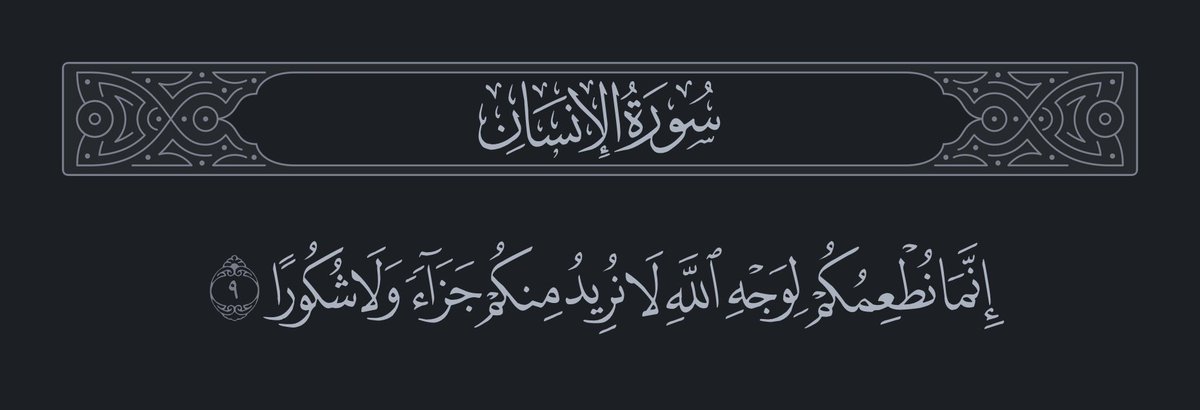 سُورَةُ الْإِنسَانِ
إِنَّمَا نُطْعِمُكُمْ لِوَجْهِ ٱللَّهِ لَا نُرِيدُ مِنكُمْ جَزَآءً وَلَا شُكُورًا ٩